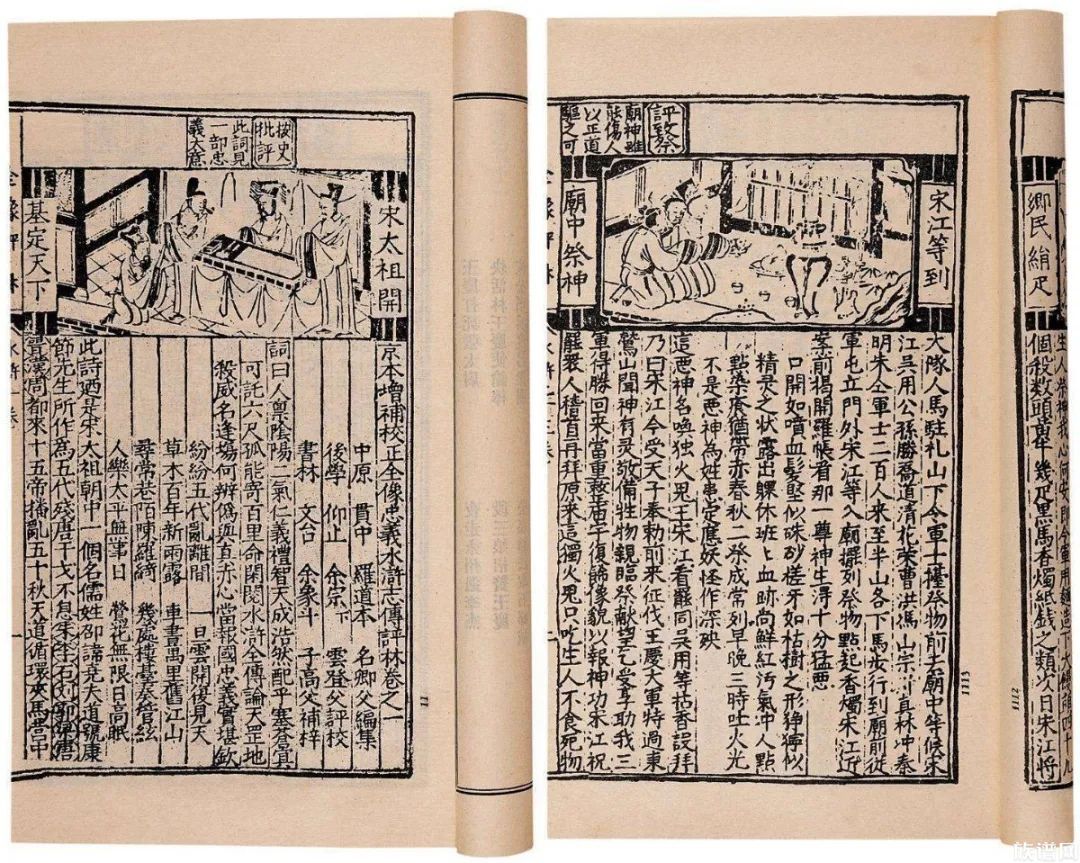 按史
批評
此詞見
一部忠
義大意
宋太祖開
基定天下
京本增補校正全像忠義水滸志傳評林卷之一
中原 貫中 羅道本 名卿父編集
後學 仰止 余宗下 雲登父評校
書林 文台 余象斗 子高父補梓
詞曰人禀陰陽二氣仁義禮智天成浩然配乎塞蒼冥
可託六尺孤能寄百里命閑閱水滸全傳論天罡地
殺威名逢場何辨偽與直赤心當報國忠義實堪欽
紛紛五代亂離間 一旦雲開復見天
草木百年新雨露 車書萬里舊江山
尋常巷陌陳羅綺 幾處樓臺奏管絃
人樂太平無事日 鶯花無限日高眠
此詩廼是宋太祖朝中一個名儒姓邵諱堯夫道號康
節先生所作為五代殘唐干戈不息朱李石劉郭梁唐
晋漢周都來十五帝播亂五十秋天道循環來馬營中
評祭
廟神雖
能傷人
以正道
驅之可
宋江等到
廟中祭神
大隊人馬駐札山下令軍士擡祭物前土廟中等候宋
江吳用公孫勝喬道清花榮曹洪馮山宗寸真林冲秦
明朱仝軍士二百人來至半山各下馬步行到廟前從
軍屯立門外宋江等入廟擺列祭物點起香燭宋江近
案前揭開羅帳看那一尊神生得十分猛惡
口開如噴血髮堅似硃砂槎牙如枯樹之形猙獰似
精灵之状露出躶休班上血跡尚鮮紅汚氣冲人點
點染賡猶帶赤春秋二祭成常列早晚三時吐火光
不是惡神為姓患定應妖怪作深殃
這惡神名喚独火鬼王宋江看罷同吳用等拈香設拜
乃曰宋江今受天子奉勅前來征伐王慶大軍特過東
鷲山聞神有灵敬備牲物親臨祭献望乞受享助我三
軍得勝回来當重整庙宇復餙像貌以報神功宋江祝
罷衆人稽首再拜原來這獨火鬼只吃生人不食死物
1113
鄉民絹疋
個殺数頭
幾疋黑馬香燭紙戔之類次日宋江將
1112
族谱网